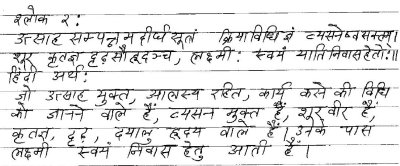 श्लोक २:
उत्साह सम्पन्नमदीर्घसूत्रं क्रियाविधिज्ञं व्यसनेष्वसक्तम्।
शूरं कृतज्ञं दृढसौहृदञ्च, लक्ष्मी: स्वयं याति निवासहेतो:॥
हिंदी अर्थ:
जो उत्साह युक्त, आलस्य रहित, कार्य करने की विधि
को जानने वाले हैं, व्यसन मुक्त हैं, शूरवीर हैं,
कृतज्ञ, दृढ़, दयालु हृदय वाले हैं। उनके पास
लक्ष्मी स्वयं निवास हेतु आती हैं।